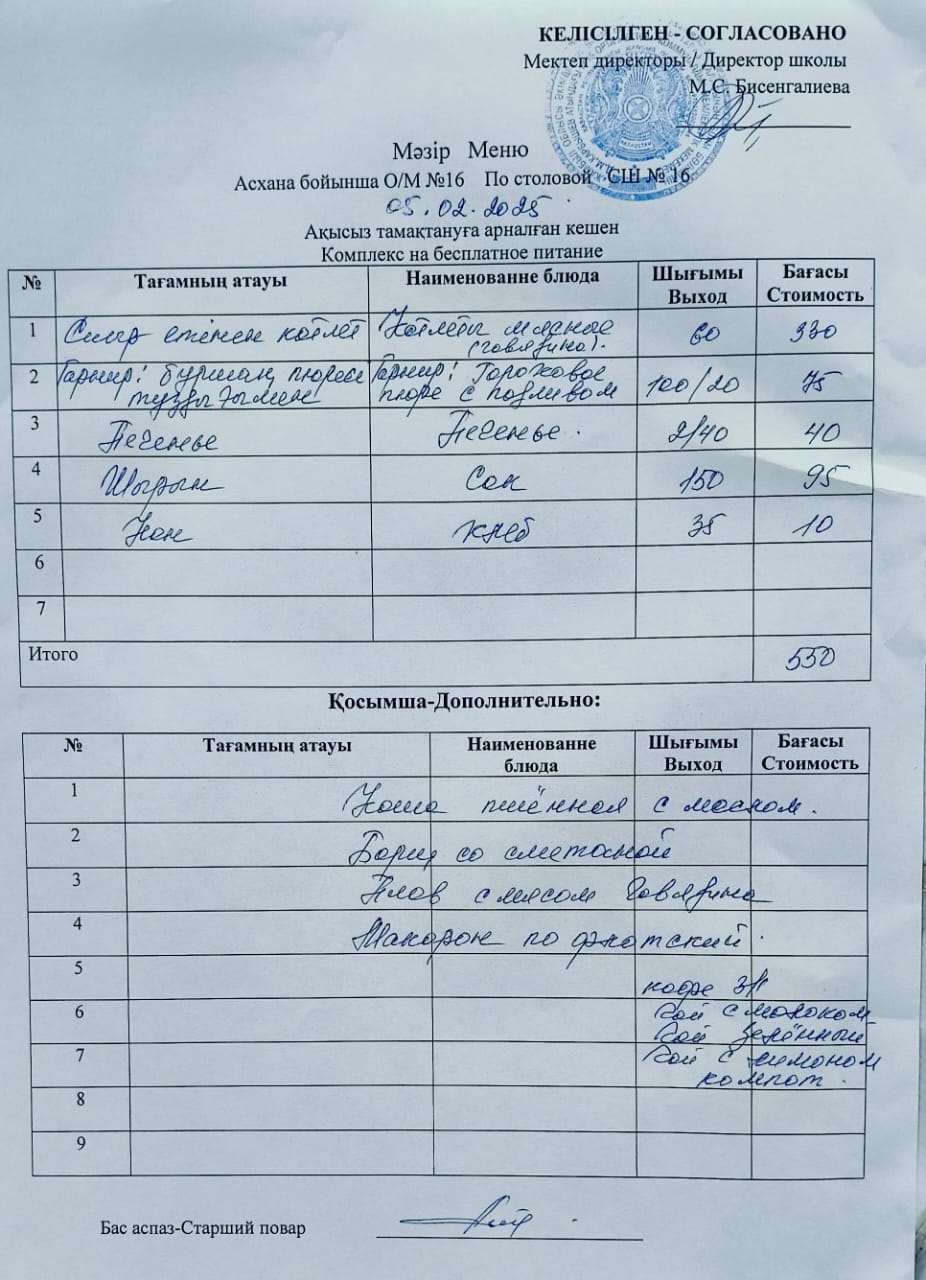 КЕЛІСІЛГЕН - СОГЛАСОВАНО
Мектеп директоры / Директор школы
М.С. Бисенгалиева
Мәзір Меню
Асхана бойынша О/М №16 По столовой СШ № 16
05.02.2025
Ақысыз тамақтануға арналған кешен
Комплекс на бесплатное питание
№ Тағамның атауы Наименованне блюда Шығымы Выход Бағасы Стоимость
1 Сиыр етінен котлет Котлеты мясные (говядина). 60 330
2 Гарнир: бұршақ пюресі тұздығымен Гарнир: Гороховое пюре с подливом 100/20 75
3 Печенье Печенье. 2/40 40
4 Шырын Сок 150 95
5 Нан хлеб 35 10
6
7
Итого 550
Қосымша-Дополнительно:
№ Тағамның атауы Наименованне блюда Шығымы Выход Бағасы Стоимость
1 Каша пшённая с маслом.
2 Борщ со сметаной
3 Плов с мясом говядина
4 Макарон по флотский.
5 кофе 3/1
6 Чай с молоком
Чай зелённый
7 Чай с лимоном
компот.
8
9
Бас аспаз-Старший повар